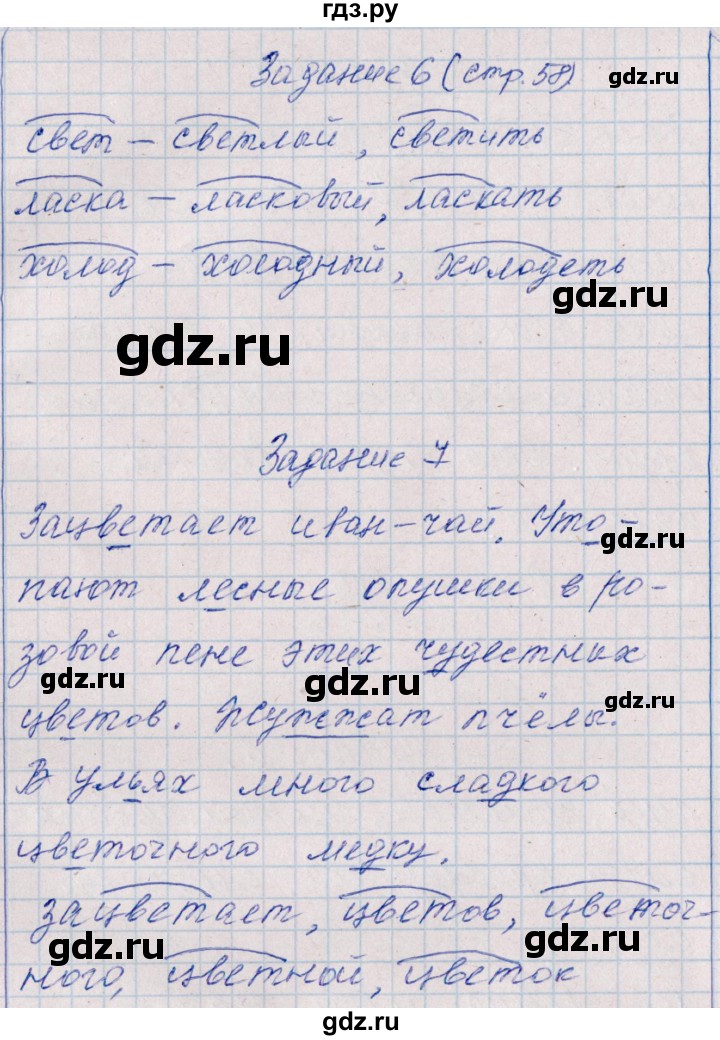 гдз.ру
Задание 6 (стр. 58)
gdz.ru
свет – светлый, светить
ласка – ласковый, ласкать
холод – холодный, холодеть
gdz.ru
gdz.ru
Задание 7
gdz.ru
Зацветает иван-чай. Уто-
gdz.ru
пают лесные опушки в ро-
зовой пене этих чудестных
gdz.ru
gdz.ru
gdz.ru
цветов. Жужжат пчёлы.
В ульях много сладкого
цветочного медку.
gdz.ru
зацветает, цветов, цветоч-
gdz.ru
gdz.ru
ного, цветной, цветок
gdz.ru
gdz.ru